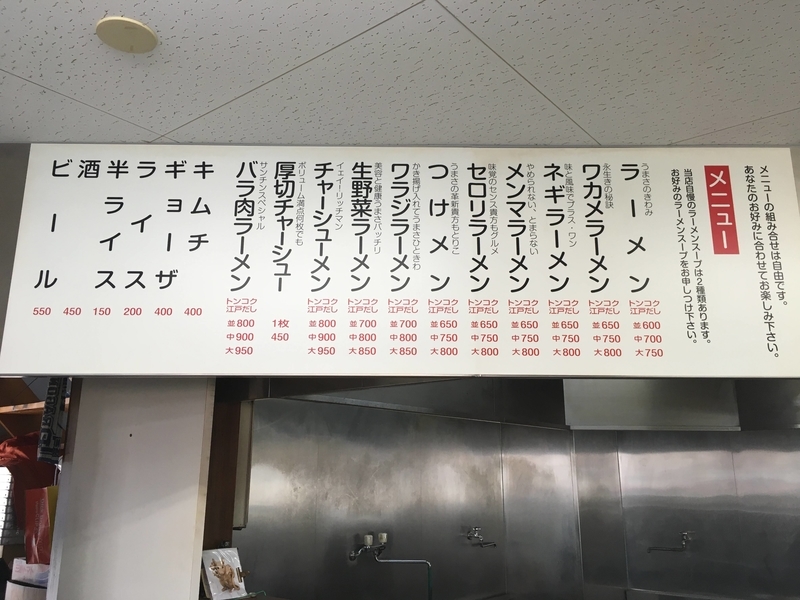 メニューの組み合せは自由です。
あなたのお好みに合わせてお楽しみ下さい。
メニュー
当店自慢のラーメンスープは2種類あります。
お好みのラーメンスープをお申しつけ下さい。
うまさのきわみ
ラーメン
トンコク
江戸だし
並600
中700
大750
永生きの秘訣
ワカメラーメン
トンコク
江戸だし
並650
中750
大800
味と風味でプラス・ワン
ネギラーメン
トンコク
江戸だし
並650
中750
大800
やめられない、とまらない
メンマラーメン
トンコク
江戸だし
並650
中750
大800
味覚のセンス貴方もグルメ
セロリラーメン
トンコク
江戸だし
並650
中750
大800
うまさの革新貴方もとりこ
つけメン
トンコク
江戸だし
並650
中750
大800
かき揚げ入れてうまさひときわ
ワラジラーメン
トンコク
江戸だし
並700
中800
大850
美容と健康うまさバッチリ
生野菜ラーメン
トンコク
江戸だし
並700
中800
大850
イェイ!リッチマン
チャーシューメン
トンコク
江戸だし
並800
中900
大950
ボリューム満点何枚でも
厚切チャーシュー
1枚
450
サンチンスペシャル
バラ肉ラーメン
トンコク
江戸だし
並800
中900
大950
キムチ
400
ギョーザ
400
ライス
200
半ライス
150
酒
450
ビール
550